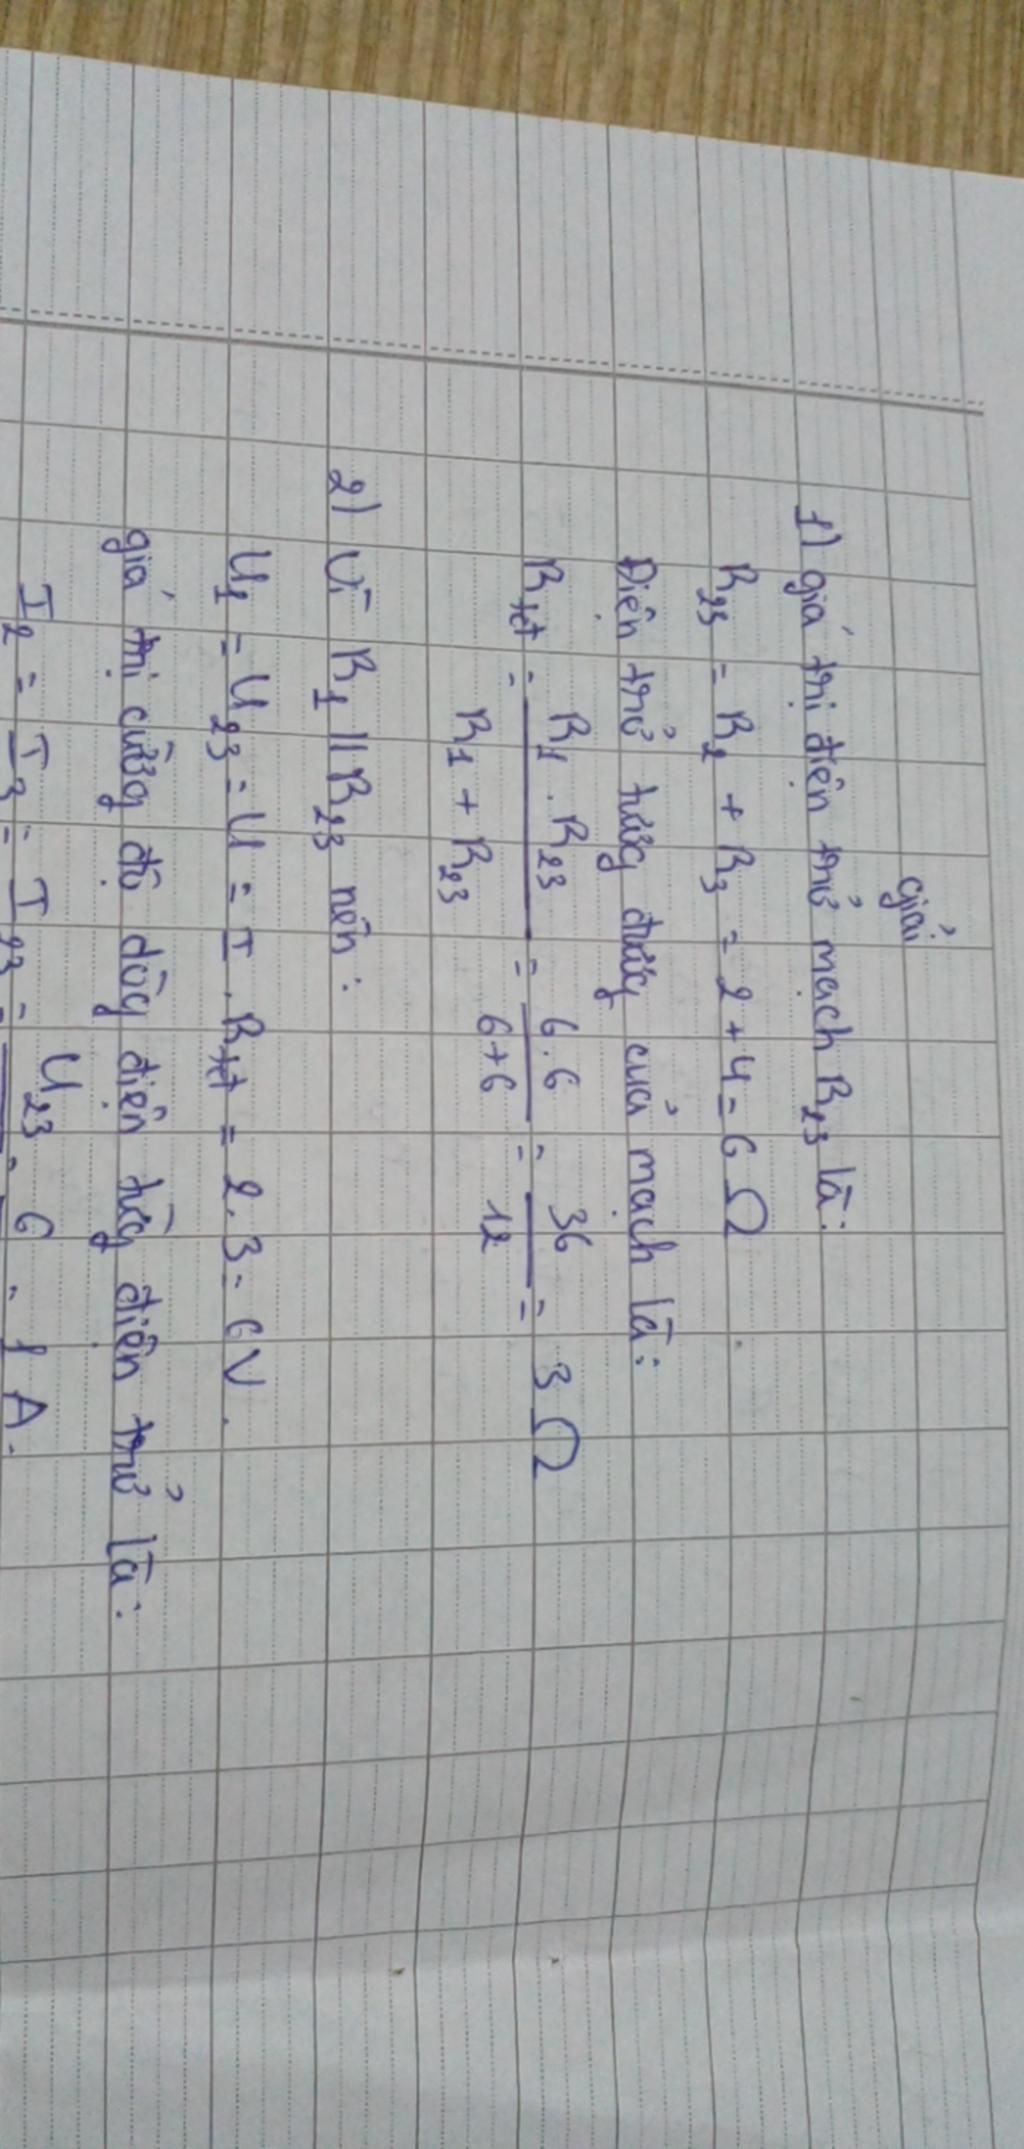 giải
1) giá trị điện trở mạch R23 là:
R23 = R2 + R3 = 2 + 4 = 6 Ω
Điện trở tương đương của mạch là:
Rtđ = R1 . R23 / R1 + R23 = 6.6 / 6+6 = 36 / 12 = 3 Ω
2) Vì R1 // R23 nên:
U1 = U23 = U = I . Rtđ = 2.3 = 6V.
giá trị cường độ dòng điện từng điện trở là:
I2 = I3 = I23 = U23 = 6 = 1 A.